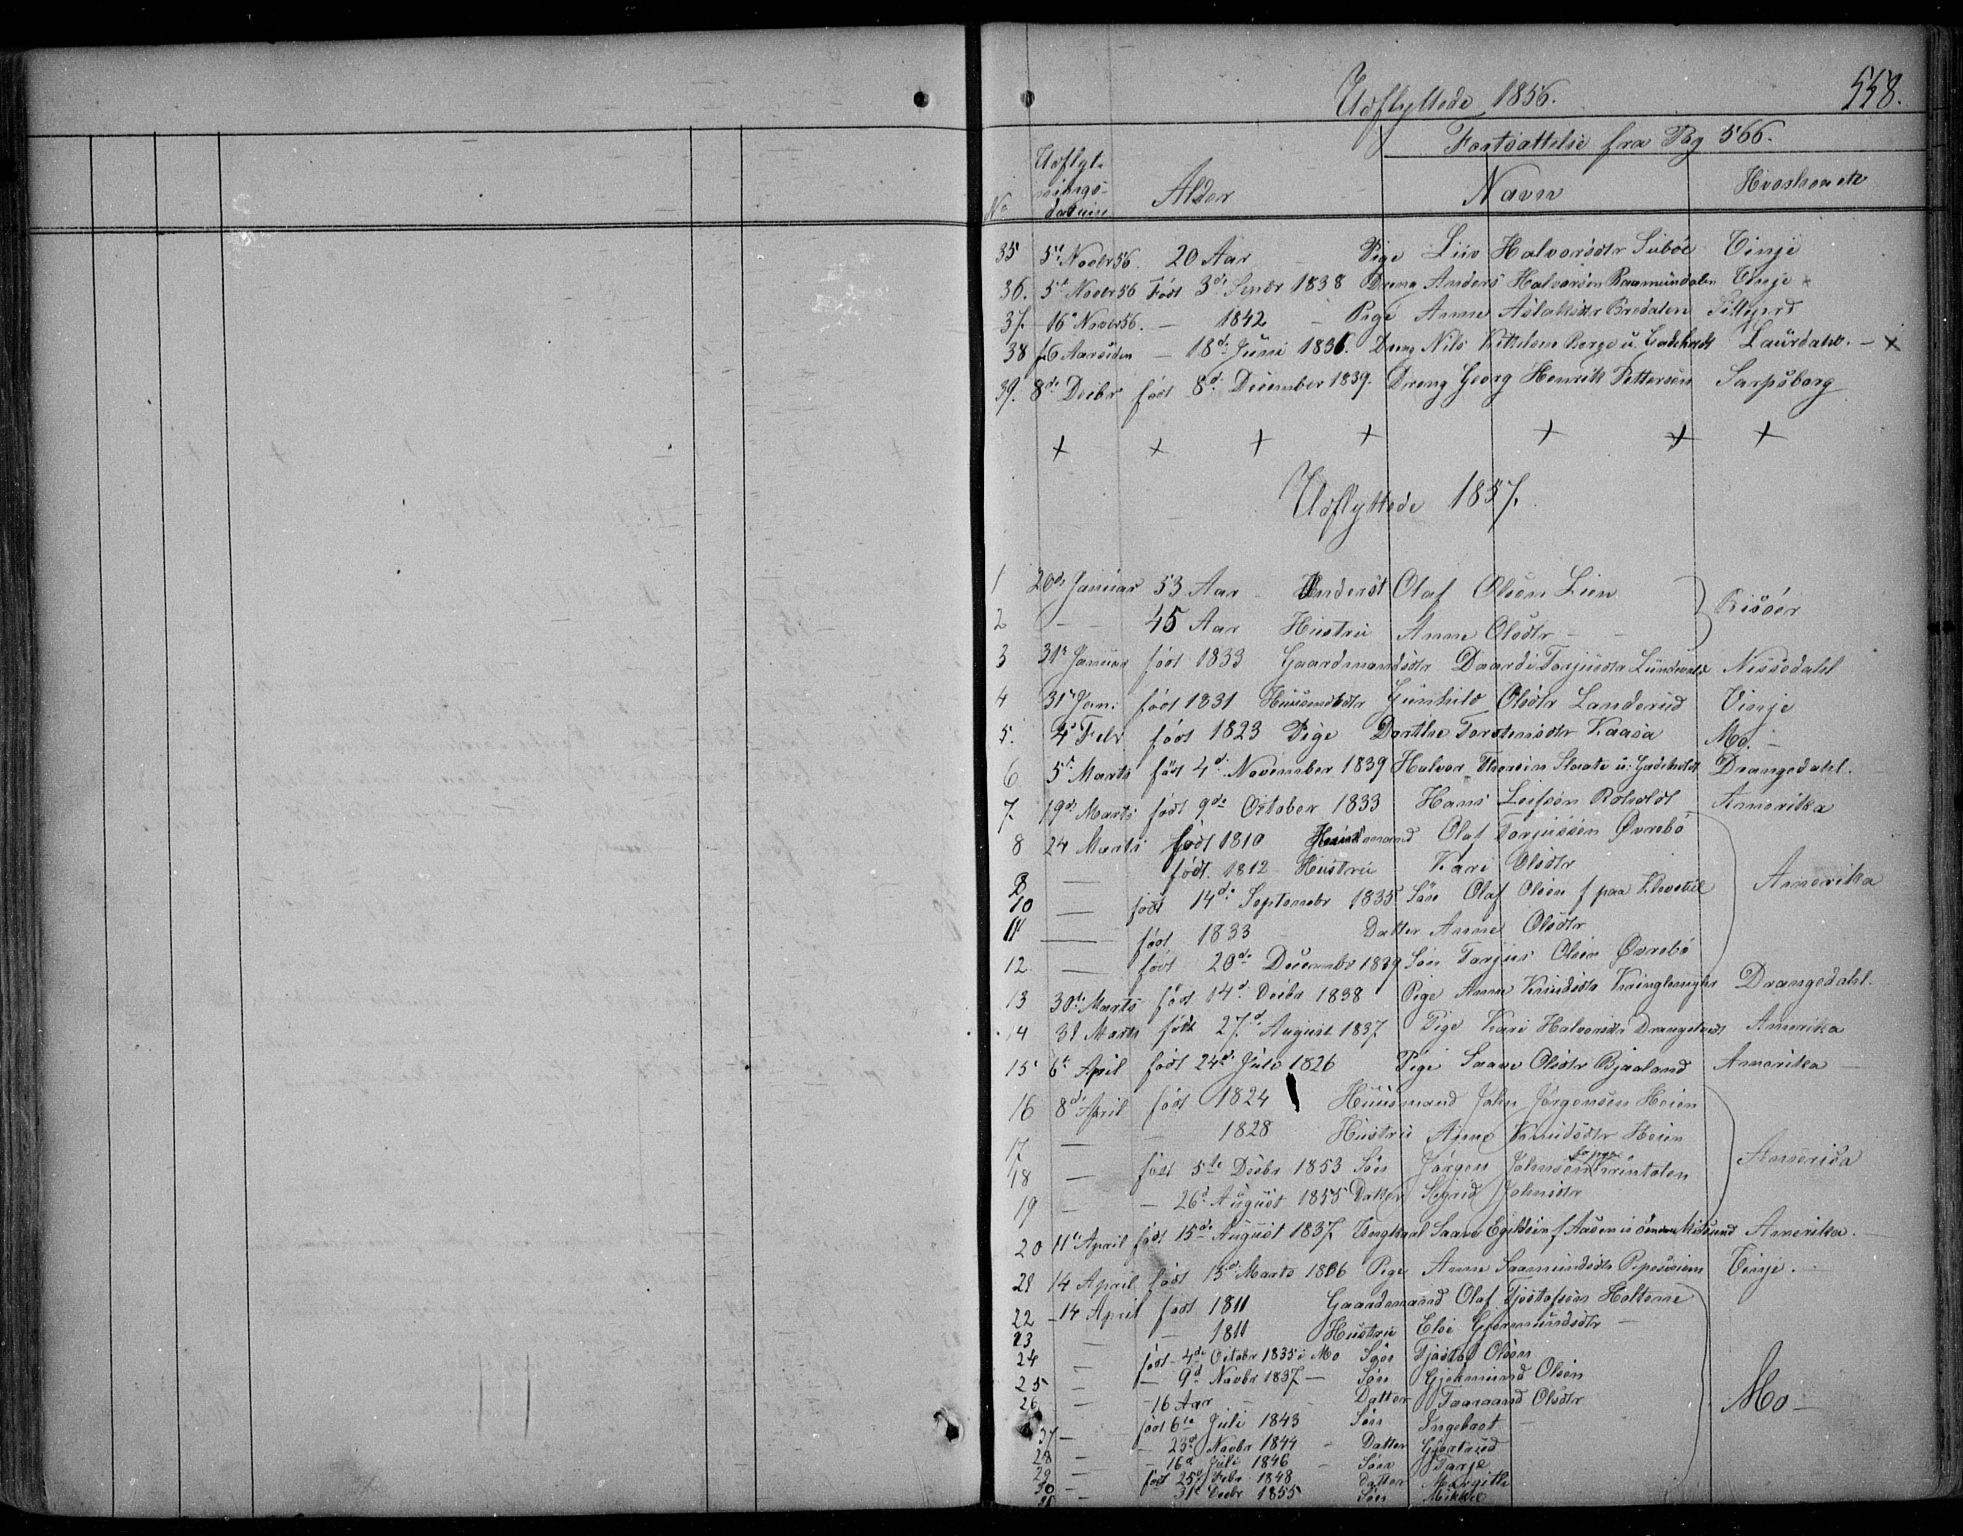 Udflyttede 1856. 558.
Fortsættelse fra Pag 566.
No Udflyt-nings-datum Alder Navn Hvorhen etc
35 5te Novbr 56. 20 Aar Pige Liv Halvorsdtr Vinje
36. 5te Novbr 56 Født 3de 1838 Dreng Anders Halvorsen Raamundalen Vinje
37. 16de Novbr 56. — 1842 — Pige Anne Aslaksdtr Bredalen
38 — 18de Juni 1836. Dreng Nils Kittelsen Berge u. Laurdahl. —
39. 8de Decbr født 8de December 1839. Dreng Georg Henrik Pettersen Sarpsborg
+ + + + + + +
Udflyttede 1857.
1 20de Januar 53 Aar Olaf Olsen Lien Risøer
2 — — 45 Aar Hustru Anne Olsdtr — —
3 31te Januar født 1833 Gaardmandsdtr Torjusdtr Nissedahl
4 31te Jan: født 1831 Huusmdsdtr Gunhild Olsdtr Landerud Vinje
5. 4de Febr født 1823 Pige Dorthe Torstensdtr Kaasa Mo. —
6 5te Marts født 4de November 1839 Halvor Staale u. Drangedahl.
7. 19de Marts født 9de October 1833 Hans Leifsen Amerika
8 24 Marts født 1810 Huusmand Olaf Torjussen Øvrebø
9 — født. 1812 Hustru Kari Olsdtr
10 — født 14de Septembr 1835 Søn Olaf Olsen f paa Amerika
11 — født 1833 Datter Anne Olsdtr
12. — født 20de Decembr 1839 Søn Torjus Olsen Øvrebø
13 30te Marts født 14de Decbr 1838 Pige Anne Knudsdtr Drangedahl.
14 31 Marts født 27de August 1837. Pige Kari Halvorsdtr Amerika
15 6te April født 24de Juli 1826 Pige Saave Olsdtr Bjaaland Amerika —
16 8de April født 1824 Huusmand John Jørgensen Heien
17. — — 1828 Hustru Anne Knudsdtr Heien
18 — født 5te Decbr 1853 Søn Jørgen Johnsen Amerika
19 — — 26de August 1855 Datter Sigrid Johnsdtr
20 11te April født 15de August 1837. Ungkaal Saave Egildsen f Aasen i Amerika.
21 14 April født 13de Marts 1806 Pige Anne Saamundsdtr Vinje.
22 14 April født 1811 Gaardmand Olaf Tjostolfsen Holtene
23 — 1811 Hustru Else Gjermundsdtr —
24 født 4de Octobr 1835 i Mo Søn Tjostol Olsen
25 — — 9de Novbr 1837. — Søn Gjermund Olsen
26 — 16 Aar — Datter Taaraand Olsdtr Mo —
27 — født 6te Juli 1843 Søn Ingebret —
28 — — 23de Novbr 1844 — Datter Gjertrud
29 — — 16de Juli 1846 — Søn Tarje
30 — født 25de Febr 1848 Datter Margithe
31 — 31te Decbr 1855 Søn Mikkel